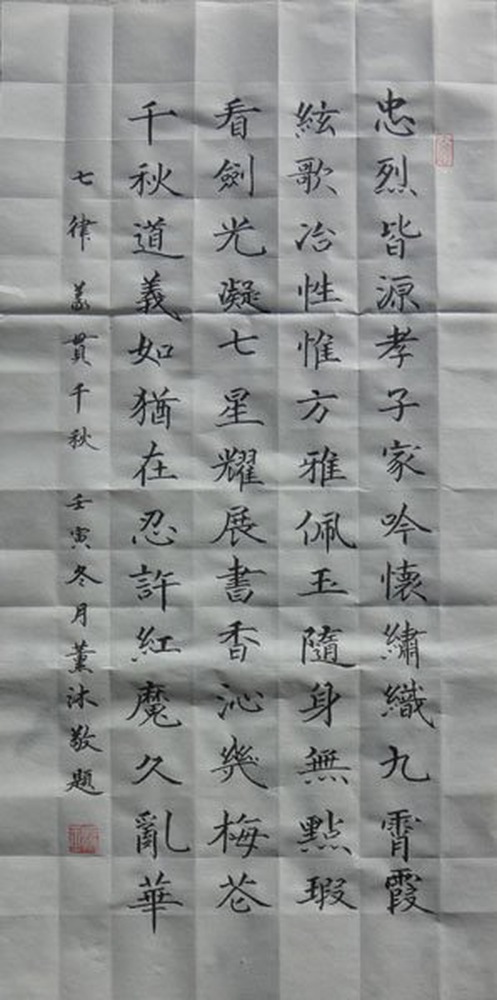 忠烈皆源孝子家吟懷繡織九霄霞
絃歌冶性惟方雅佩玉隨身無點瑕
看劍光凝七星耀展書香沁幾梅花
千秋道義如猶在忍許紅魔久亂華
七律 義貫千秋 壬寅冬月薰沐敬題